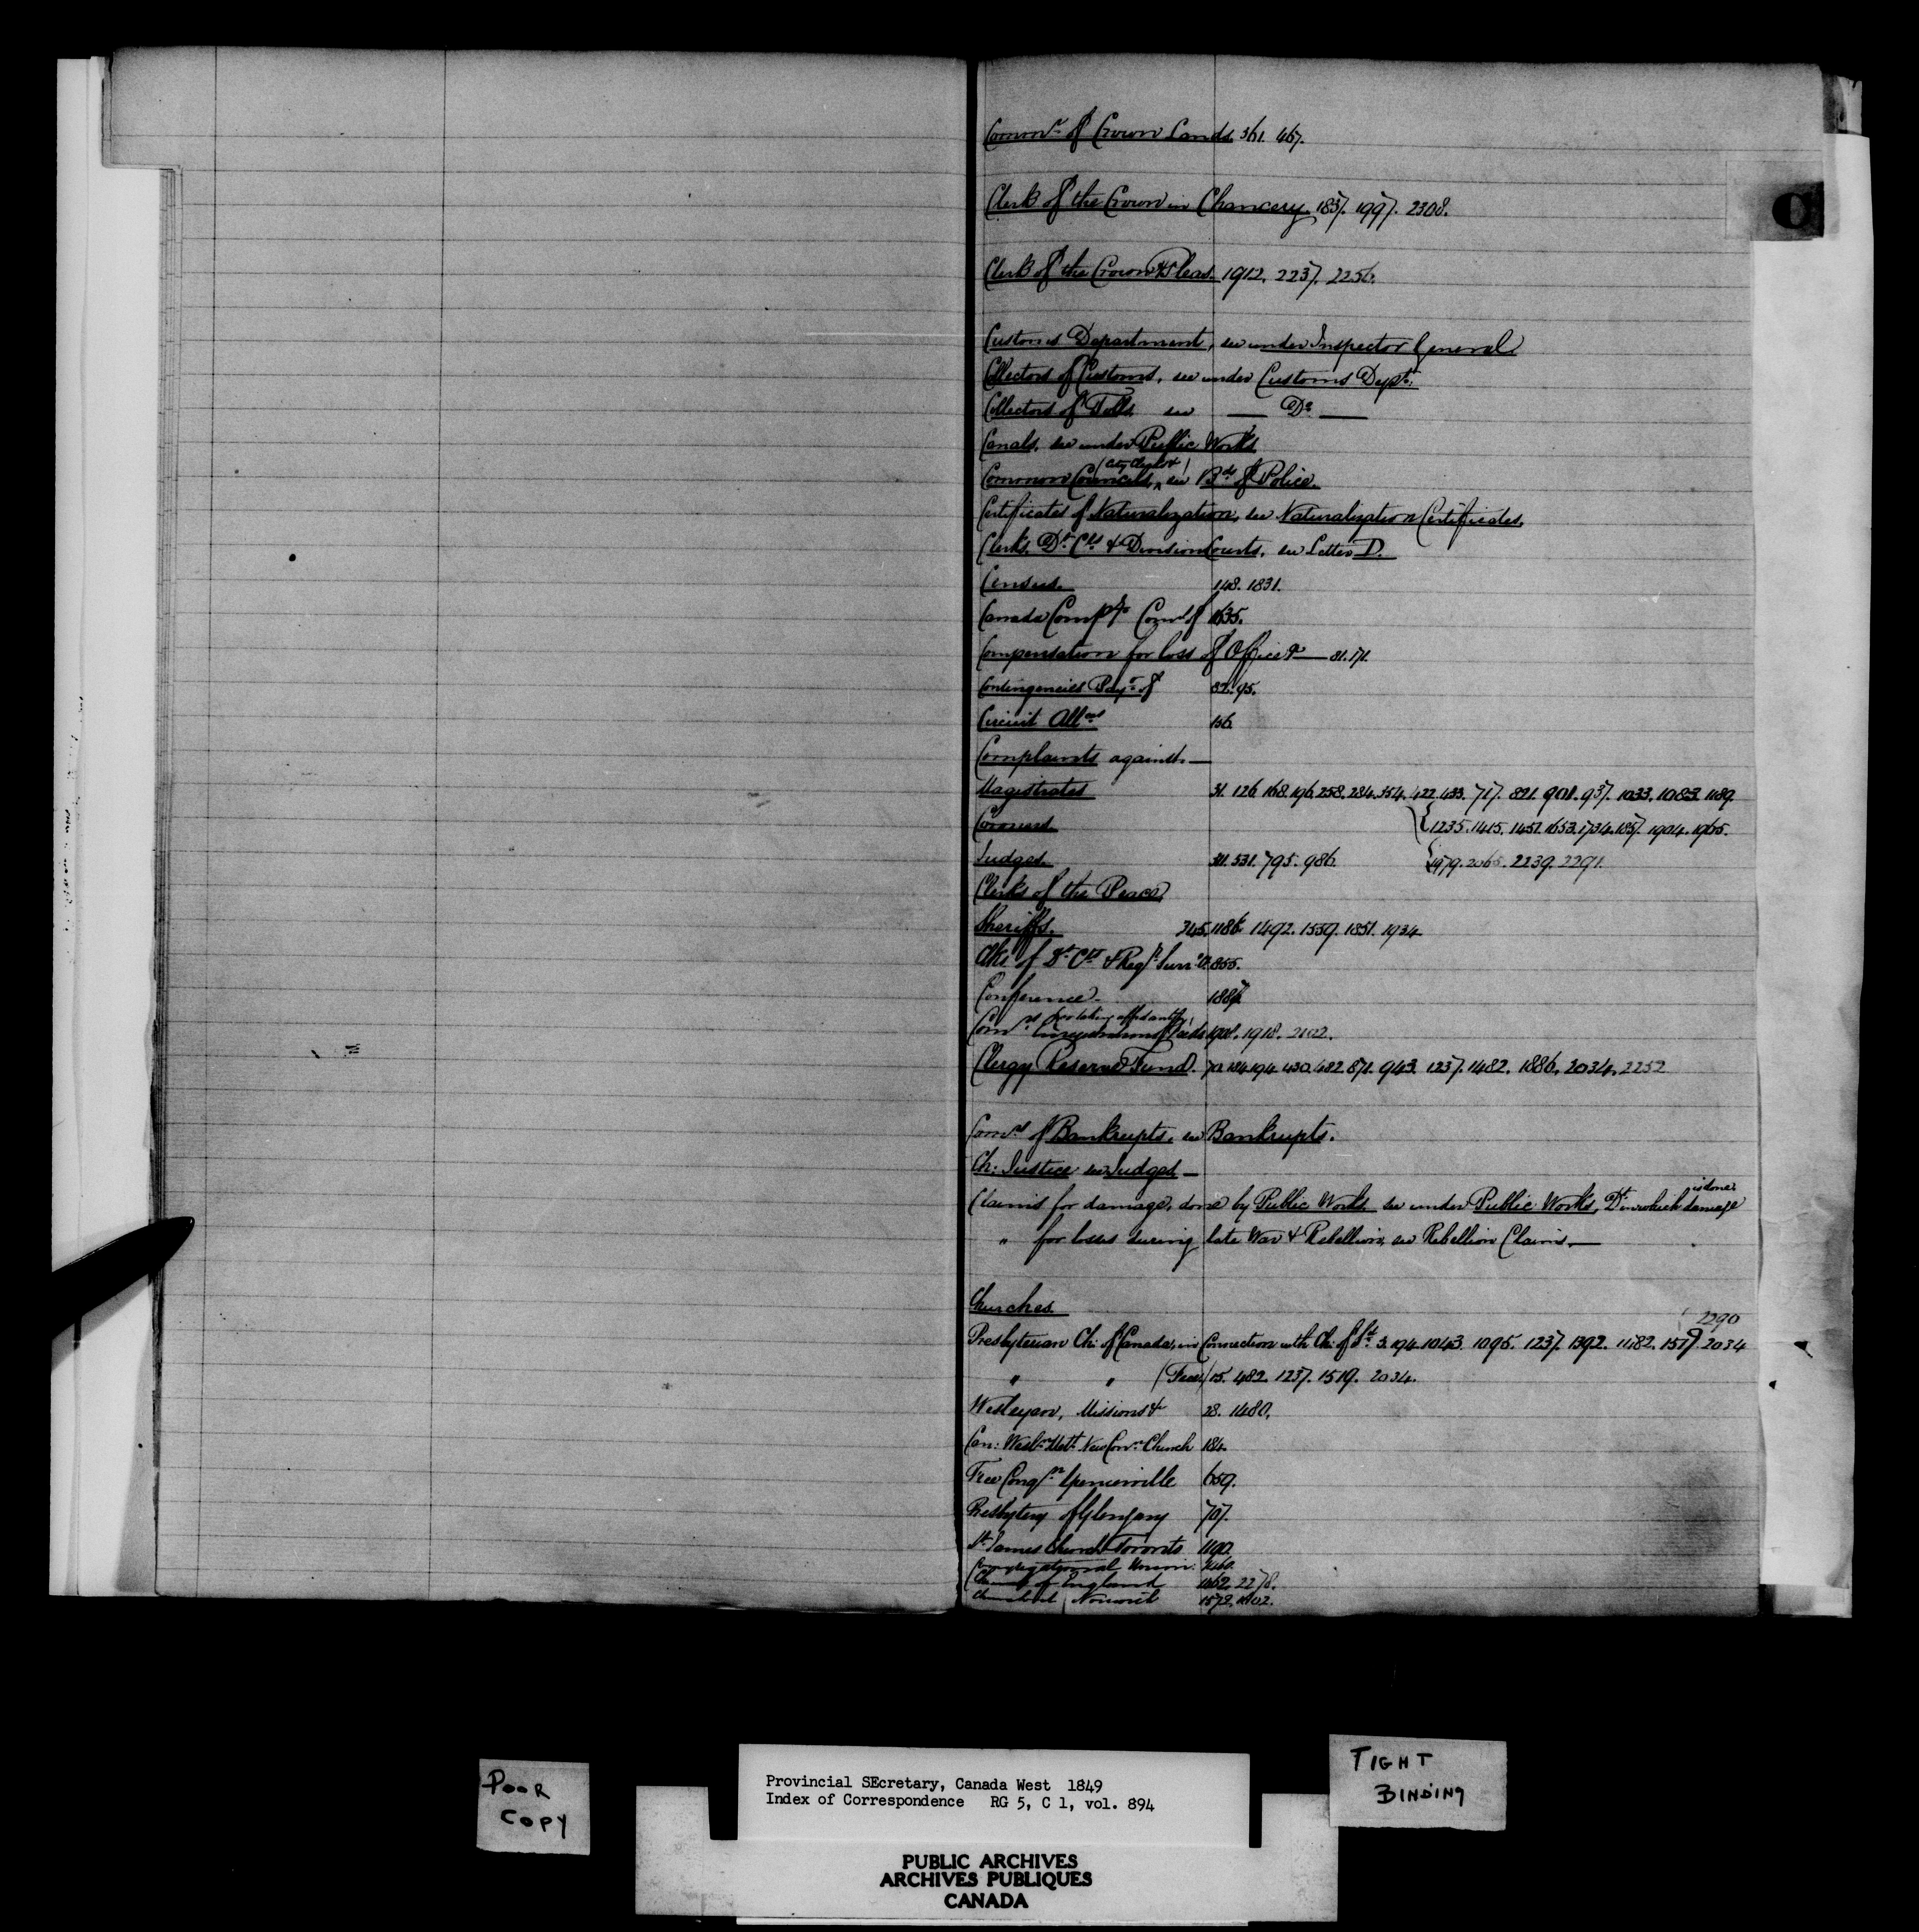 Commr. of Crown Lands. 361. 467.
Clerk of the Crown in Chancery. 1837. 1997. 2308.
C
Clerk of the Crown & Pleas. 1912. 2237. 2256.
Customs Department, see under Inspector General
Collectors of Customs, see under Customs Dept.
Collectors of Tolls see — Do —
Canals, see under Public Works
(City Clerks &)
Common Councils, see Bds of Police.
Certificates of Naturalization, see Naturalization Certificates.
Clerks, Dt. Cts & Division Courts, see Letter D.
Census. 148. 1831.
Canada Compy Comrs of 1635.
Compensation for loss of Office &c — 81. 171.
Contingencies Payt. of 82. 95.
Circuit Allces 156.
Complaints against —
Magistrates 31. 126. 168. 196. 258. 284. 354. 422. 433. 717. 821. 901. 937. 1033. 1083. 1189.
Coroners. 1235. 1415. 1451. 1653. 1734. 1857. 1904. 1965.
Judges. 311. 531. 795. 986. 1979. 2065. 2239. 2291.
Clerks of the Peace.
Sheriffs. 345. 1186. 1492. 1559. 1851. 1934.
Clks. of Dt. Cts & Regr. Surr. Ct. 855.
Conference. 1887.
for taking affidavits
Comrs 1908. 1918. 2102.
Clergy Reserve Fund. 70. 184. 194. 430. 482. 871. 943. 1237. 1482. 1886. 2034. 2252
Comrs of Bankrupts, see Bankrupts.
Ch: Justice see Judges —
is done.
Claims for damage, done by Public Works. see under Public Works, Dt in which damage
" for losses during late War & Rebellion, see Rebellion Claims. —
Churches.
2290
Presbyterian Ch: of Canada, in Connection with Ch: of Sd. 3. 194. 1043. 1095. 1237. 1392. 1482. 1519. 2034
" " (Free) 15. 482. 1237. 1519. 2034.
Wesleyan, Missions & 28. 1480.
Can: Wesln. Meth. New Conn. Church 184.
Free Congn. Spencerville 659.
Presbytery of Glengary 707.
St. James Church Toronto 1190.
Congregational Union. 2160.
Church of England 1662. 2278.
Norwich 1572. 1802.
POOR
COPY
Provincial SEcretary, Canada West 1849
Index of Correspondence RG 5, C 1, vol. 894
TIGHT
BINDING
PUBLIC ARCHIVES
ARCHIVES PUBLIQUES
CANADA